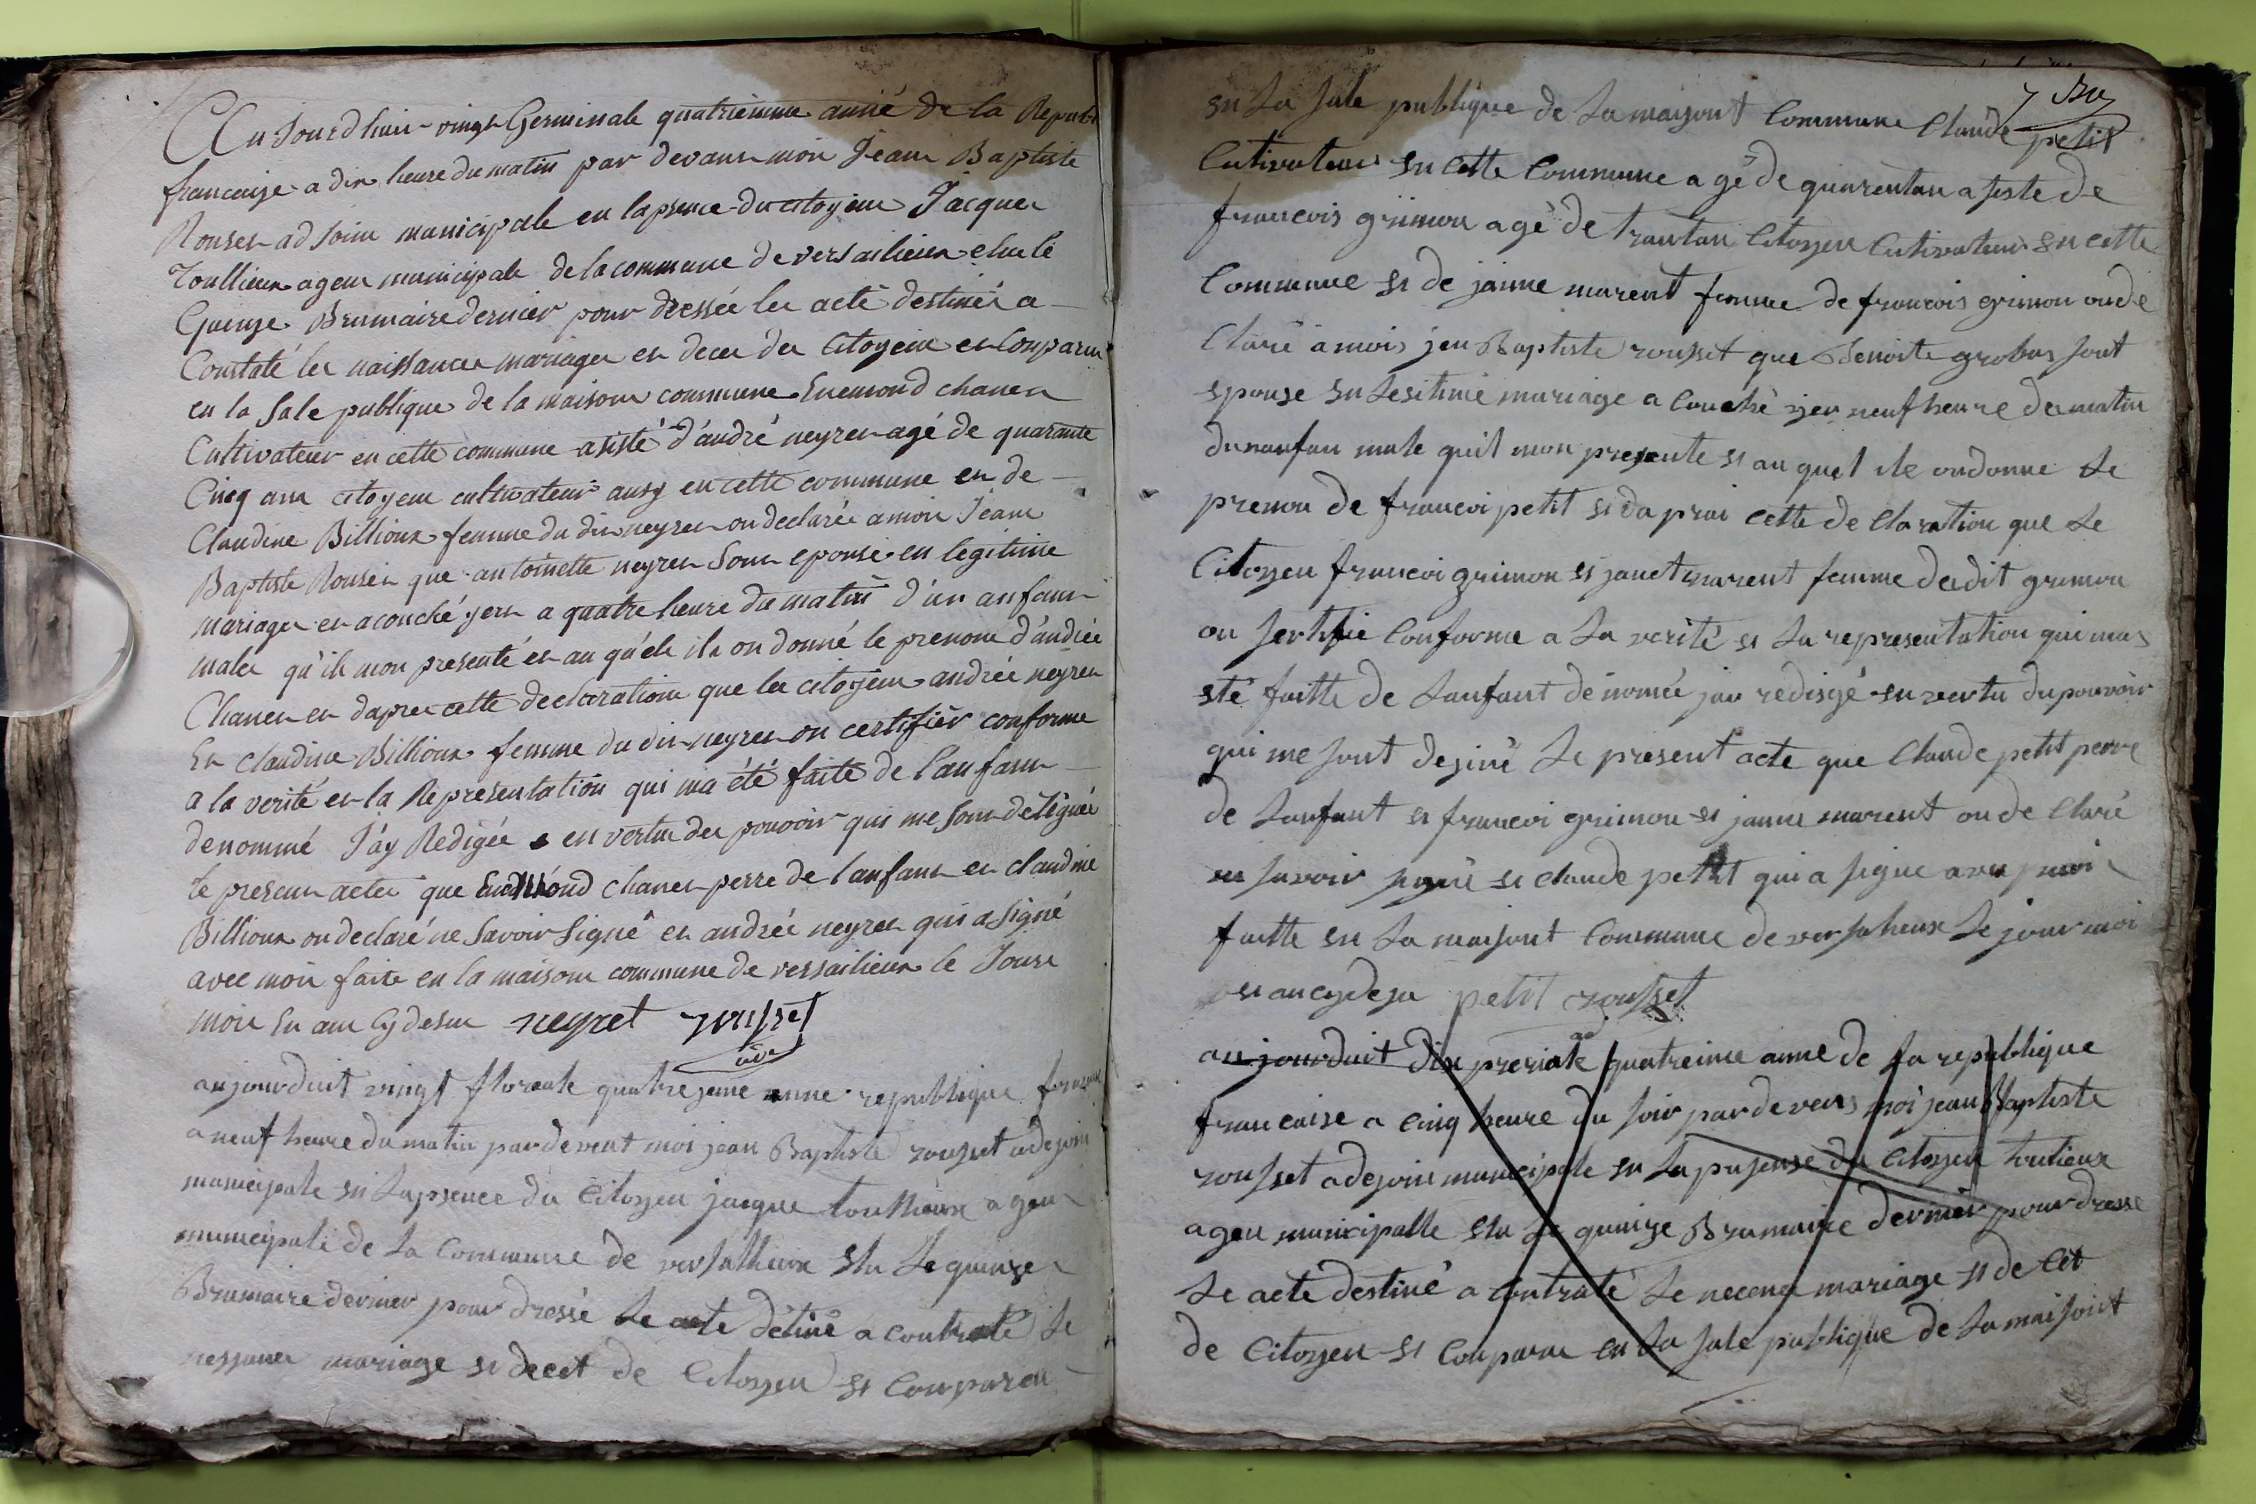 Au Jourdhuis vingt Germinale quatriemme année de la Republi
francaise a dix heure du matin par devant moi Jean Baptiste
Rouset adjoint municipale en la psence du citoyein Jacques
Toullieux agent municipale de la commune de versailieux elu le
Quinze Brumaire dernier pour dressée les acte destinés a
Constaté les naissances mariages et deces des Citoyeins et Comparu
en la Sale publique de la maison commune Enemond chanen
Cultivateur en cette commune asisté d'andré neyret agé de quarante
Cinq ans citoyein cultivateur ausy en cette commune et de
Claudine Billioux femme du dit neyret on declarée a moi Jean
Baptiste Rouset que antoinette neyret Son epouse en legitime
mariages et acouché yert a quatre heure du matin d'un anfant
males qu'ils mon presenté et au qu'els ils on donné le prenom d'andrée
Chanen et dapres cette declaration que les citoyeins andrée neyret
Et Claudine Billioux femme du dit neyret on certifiér conforme
a la verité et la Representation qui ma été faite de l'anfant
denommé J'áy Redigée en vertu des pouvoir qui me sont délégués
le present actes que Enemond chanen perre de l'anfant et claudine
Billioux on declaré ne Savoir Signé et andrée neyret qui a Signé
avec moi faite en la maison commune de versailieux le Jour
mois Et an Cy desus neyret rousset
ade
aujourduit vingt floreale quatrezeme anne republique francai
a neuf heure du matin pardevent moi jean Baptiste rousset adejoin
municipale en lapsence du Citoyen jacque toullieux agen
municipale de la Commune de versallieux Elu le quinze
Brumaire dernier pour dressé le acte détiné a contraté le
nessance mariage et decet de Citoyen et Comparu
7 Bre
en la sale publique de la maisont Commune Claude petit
Cutivateur en cette Commune agé de quarentan asiste de
francois grimon agé de trantan Citoyen Cutivateur en cette
Commune et de janne marent femme de francois grimon on dé
Claré a mois jen Baptiste rousset que Benoite grobas sont
epouse en lesitime mariage a Couché yer neuf heure du matin
dunanfan male quil mon presente et au quel ile ondonne le
prenon de francoi petit et daprai cette de Claration que le
Citoyen francoi grimon et janet marent femme dudit grimon
on sertifié Conforme a la verité et la representation qui mas
eté faitte de lanfant dénomé jai redisgé en vertu du pouvoir
qui me sont desiné le present acte que Claude petit perre
de lanfant et francoi grimon et janne marent on de Claré
ne savoir signé et claude petit qui a signe avec moi
faitte en la maisont Commune de versaheux le jour moi
et an cy desu petit rousset
aujourduit dix preriale quatreime anne de la republique
francaise a cinq heure du soir pardevens moi jean Baptiste
rousset adejoin municipale en la pusense du Citoyen toutieux
agen municipalle Elu le quinze Brumaire dernier pour dresse
le acte destiné a Contraté le necence mariage et de Cet
de Citoyen et Comparu en la sale publique de la maisont